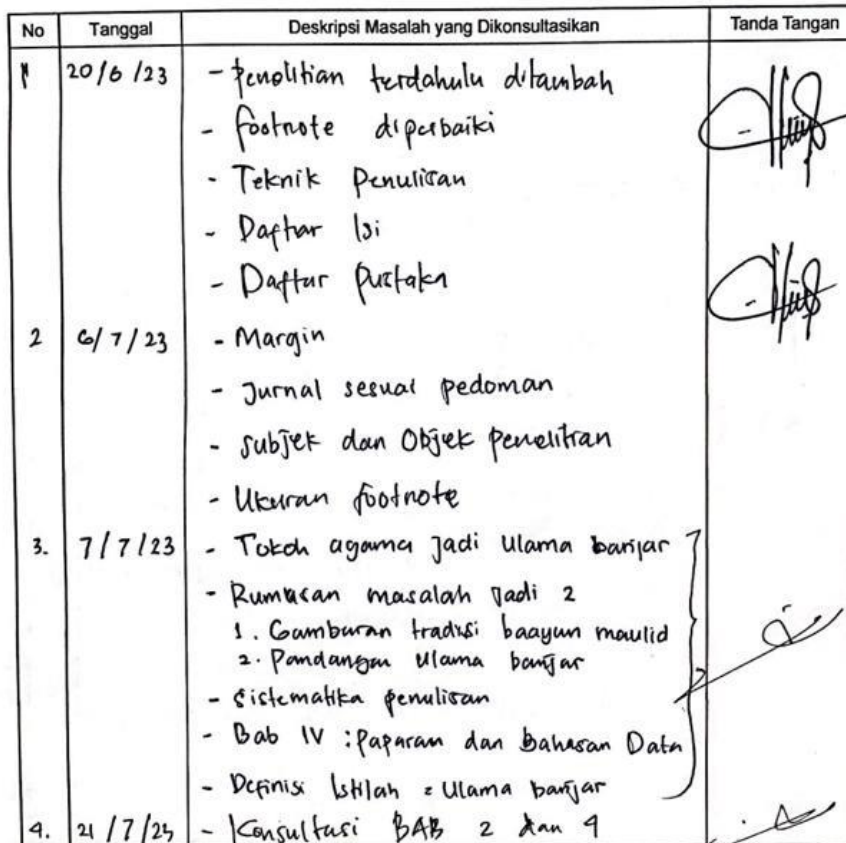 No Tanggal Deskripsi Masalah yang Dikonsultasikan Tanda Tangan
1 20/6/23 - Penelitian terdahulu ditambah
- footnote diperbaiki
- Teknik Penulisan
- Daftar Isi
- Daftar Pustaka
2 6/7/23 - Margin
- Jurnal sesuai pedoman
- Subjek dan Objek penelitian
- Ukuran footnote
3. 7/7/23 - Tokoh agama jadi Ulama banjar
- Rumusan masalah jadi 2
1. Gambaran tradisi baayun maulid
2. Pandangan Ulama banjar
- Sistematika penulisan
- Bab IV : Paparan dan Bahasan Data
- Definisi Istilah = Ulama banjar
4. 21/7/23 - Konsultasi BAB 2 dan 4